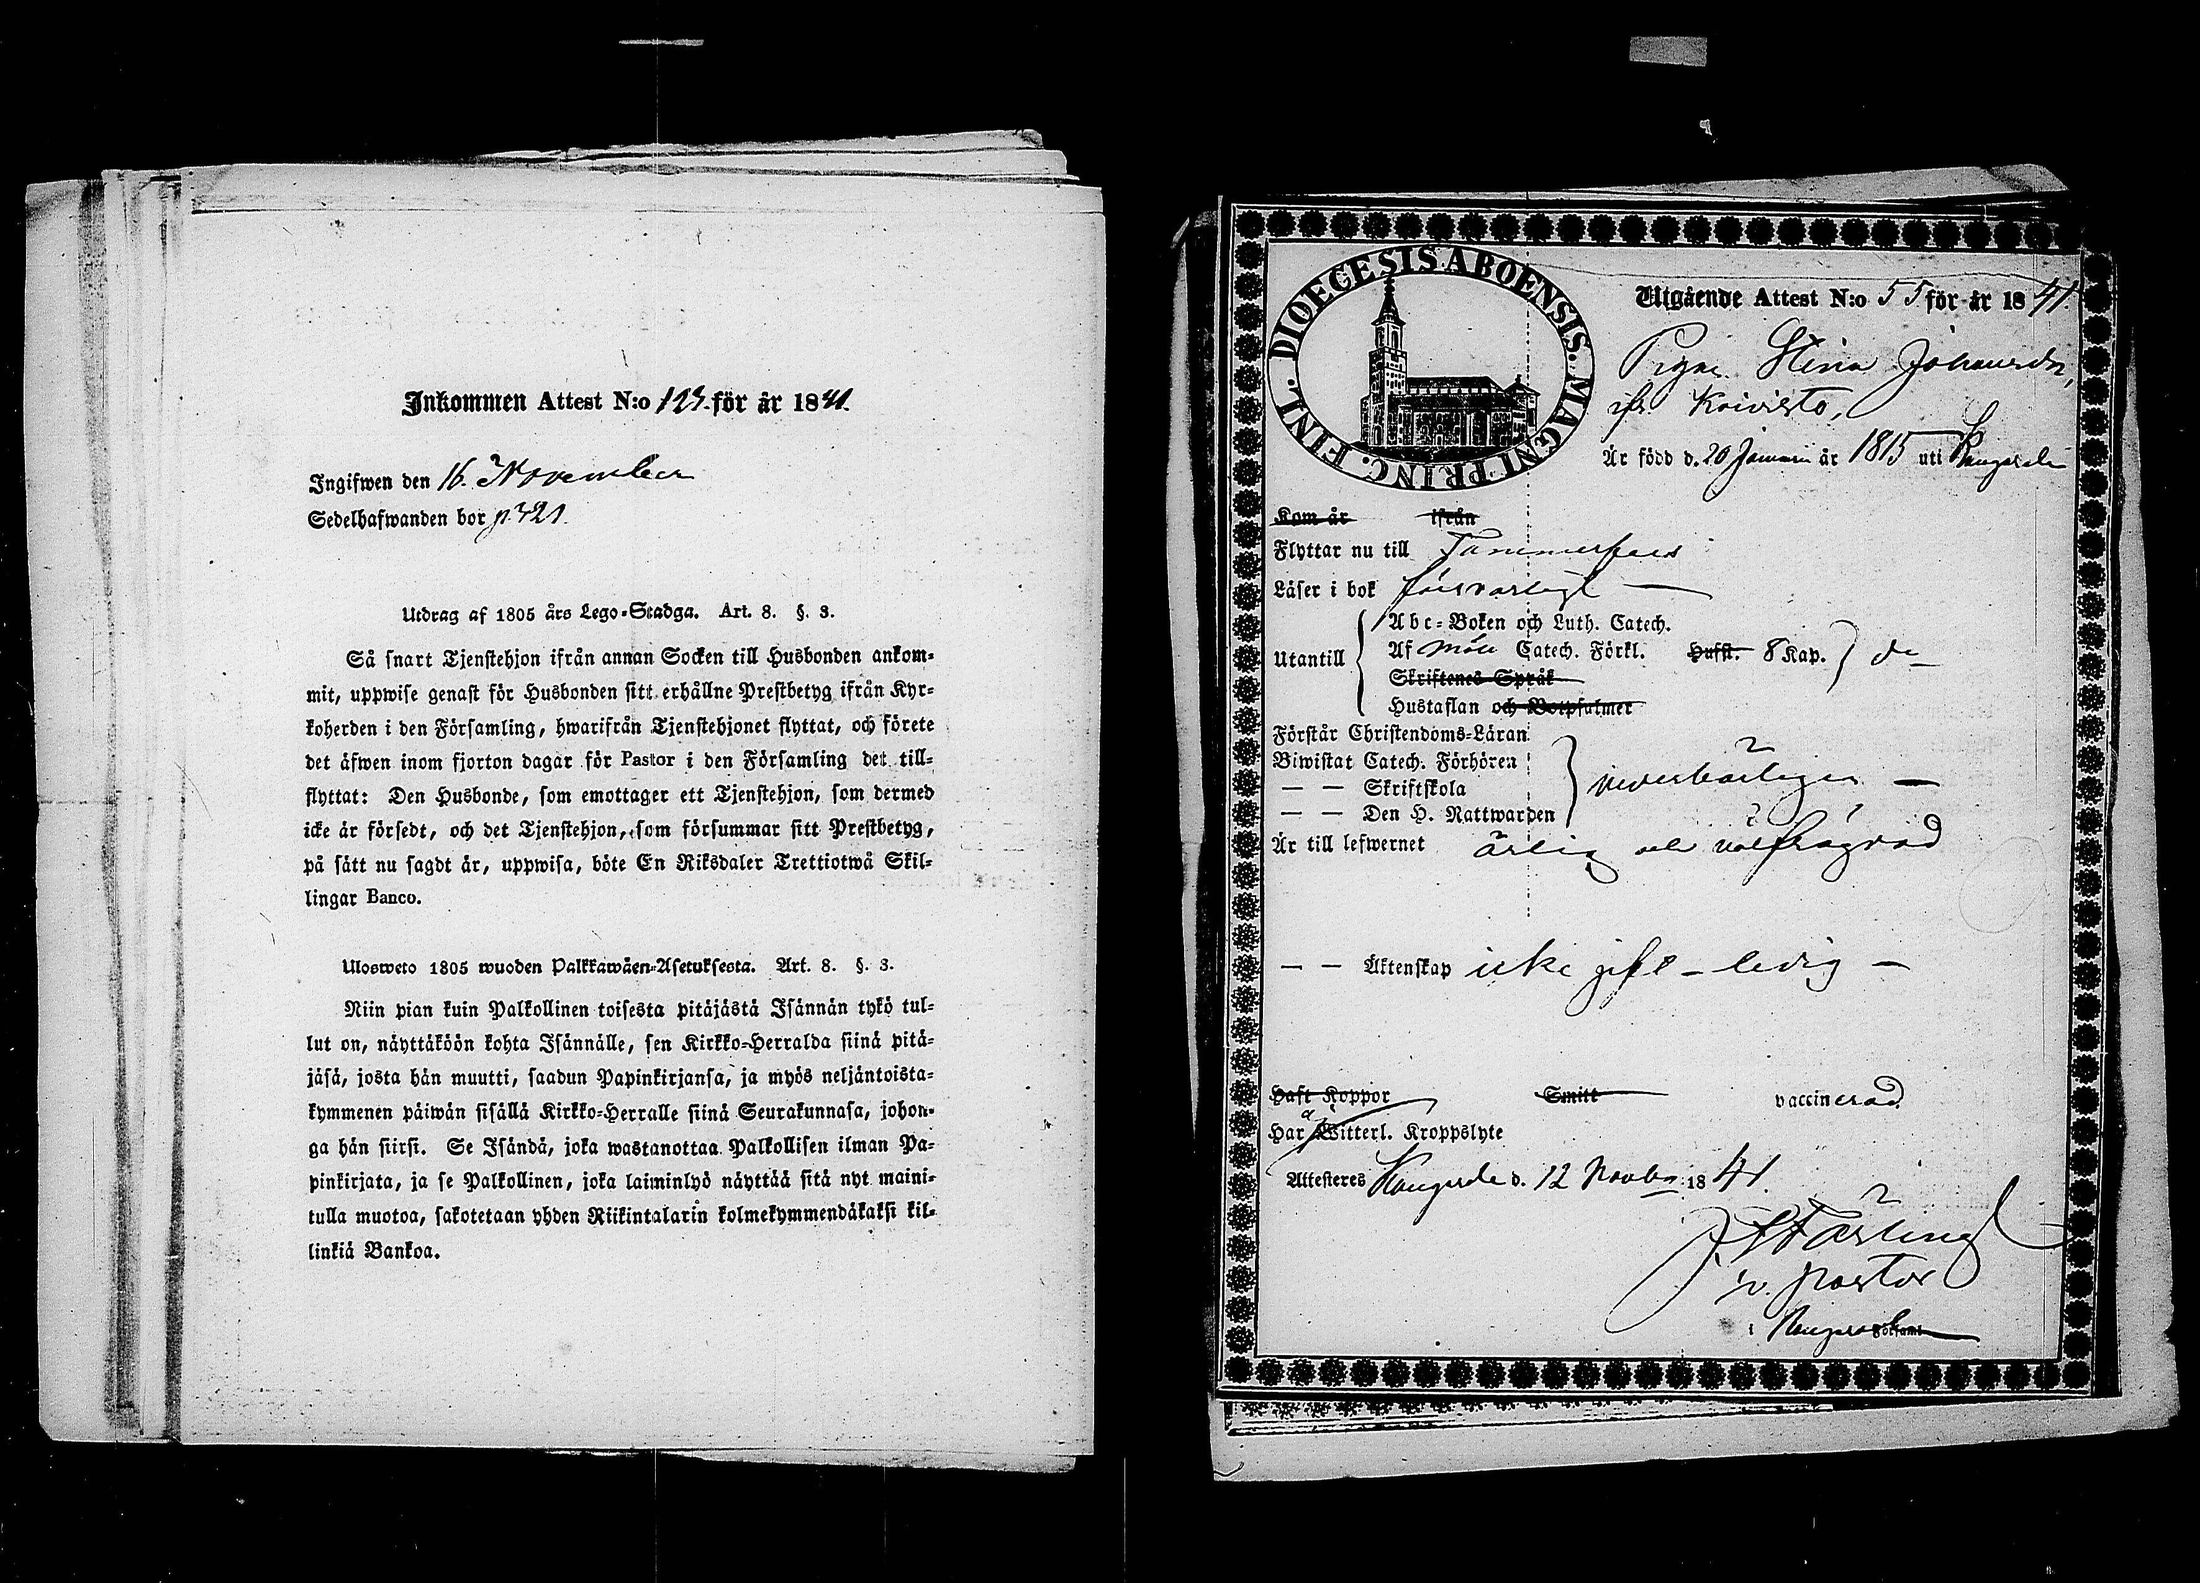 Inkommen Attest N:o 123. för år 1841.
Ingifwen den 16. November
Sedelhafwanden bor p. 321.
Utdrag af 1805 års Lego-Stadga. Art. 8. §. 3.
Så snart Tjenstehjon ifrån annan Socken till Husbonden ankom-
mit, uppwise genast för Husbonden sitt erhållne Prestbetyg ifrån Kyr-
koherden i den Församling, hwarifrån Tjenstehjonet flyttat, och förete
det äfwen inom fjorton dagar för Pastor i den Församling det till-
flyttat: Den Husbonde, som emottager ett Tjenstehjon, som dermed
icke är försedt, och det Tjenstehjon, som försummar sitt Prestbetyg,
på sätt nu sagdt är, uppwisa, böte En Riksdaler Trettiotwå Skil-
lingar Banco.
Ulosweto 1805 wuoden Palkkawäen-Asetuksesta. Art. 8. §. 3.
Niin pian kuin Palkollinen toisesta pitäjästä Isännän tykö tul-
lut on, näyttäköön kohta Isännälle, sen Kirkko-Herralda siinä pitä-
jäsä, josta hän muutti, saadun Papinkirjansa, ja myös neljäntoista-
kymmenen päiwän sisällä Kirkko-Herralle siinä Seurakunnasa, johon-
ga hän siirsi. Se Isändä, joka wastanottaa Palkollisen ilman Pa-
pinkirjata, ja se Palkollinen, joka laiminlyö näyttää sitä nyt maini-
tulla muotoa, sakotetaan yhden Riikintalarin kolmekymmendäkaksi kil-
linkiä Bankoa.
DIOECESIS ABOENSIS. MAGNI PRINC. FINL.
Utgående Attest N:o 55 för år 1841.
Pigan Stina Johansdr,
ifr Koivisto,
Är född d. 20 Januari år 1815 uti Kangasala
Kom år ifrån
Flyttar nu till Tammerfors
Läser i bok försvarligt
Utantill
Abc-Boken och Luth. Catech.
Af Möll. Catech. Förkl. Hufst. 8 Kap. do
Skriftenes Språk
Hustaflan och Botpsalmer
Förstår Christendoms-Läran
Biwistat Catech. Förhören
— — Skriftskola
— — Den H. Nattwarden
vederbörligen
Är till lefwernet ärlig och välfrägdad
— — Äktenskap icke gift – ledig –
Haft Koppor Smitt vaccinerad.
Har ej Witterl. Kroppslyte
Attesteres Kangasala d. 12 Novbr 1841.
v. pastor
i Kangasala Församl.